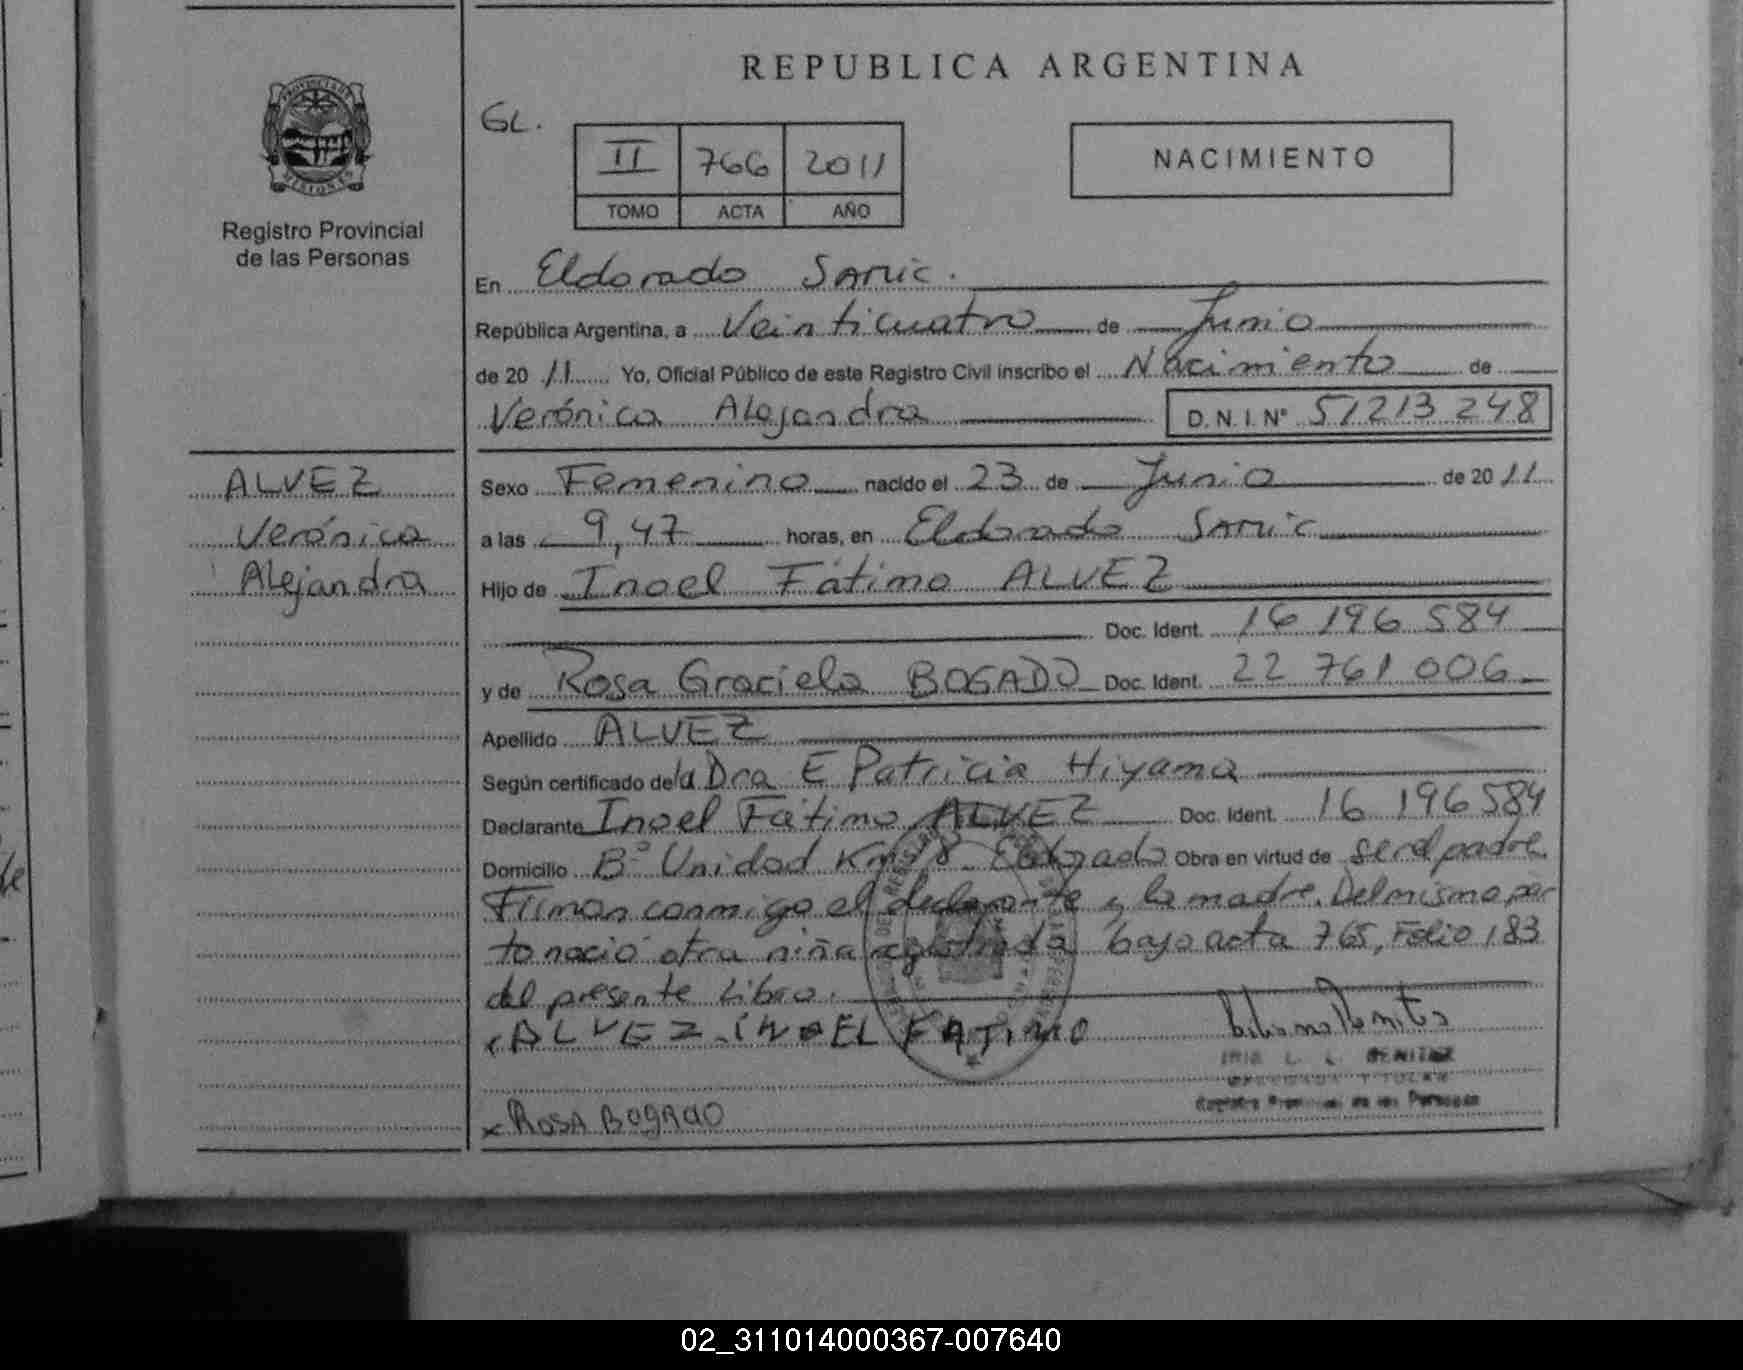 REPUBLICA ARGENTINA
GL.
II 766 2011
TOMO ACTA AÑO
NACIMIENTO
PROVINCIA DE
MISIONES
Registro Provincial
de las Personas
En Eldorado SAMIC.
República Argentina, a Veinticuatro de Junio
de 20 11 Yo, Oficial Público de este Registro Civil inscribo el Nacimiento de
Verónica Alejandra D.N.I. Nº 51213248
ALVEZ
Verónica
Alejandra
Sexo Femenino nacido el 23 de Junio de 20 11
a las 9,47 horas, en Eldorado SAMIC
Hijo de Inoel Fátimo ALVEZ
Doc. Ident. 16 196 584
y de Rosa Graciela BOGADO Doc. Ident. 22 761 006
Apellido ALVEZ
Según certificado de la Dra E Patricia Hiyama
Declarante Inoel Fátimo ALVEZ Doc. Ident. 16 196 584
Domicilio Bº Unidad Km 8 Eldorado Obra en virtud de ser el padre.
Firman conmigo el declarante y la madre. Del mismo par
to nació otra niña registrada bajo acta 765, Folio 183
del presente Libro.
ALVEZ INOEL FATIMO
BENITEZ
TITULAR
Registro Provincial de las Personas
x ROSA BOGADO
02_311014000367-007640